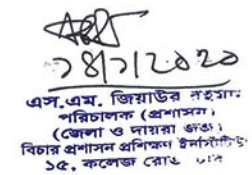 ১৪/১/২০২০
এস.এম. জিয়াউর রহমান
পরিচালক (প্রশাসন)
(জেলা ও দায়রা জজ)
বিচার প্রশাসন প্রশিক্ষণ ইনস্টিটিউট
১৫, কলেজ রোড